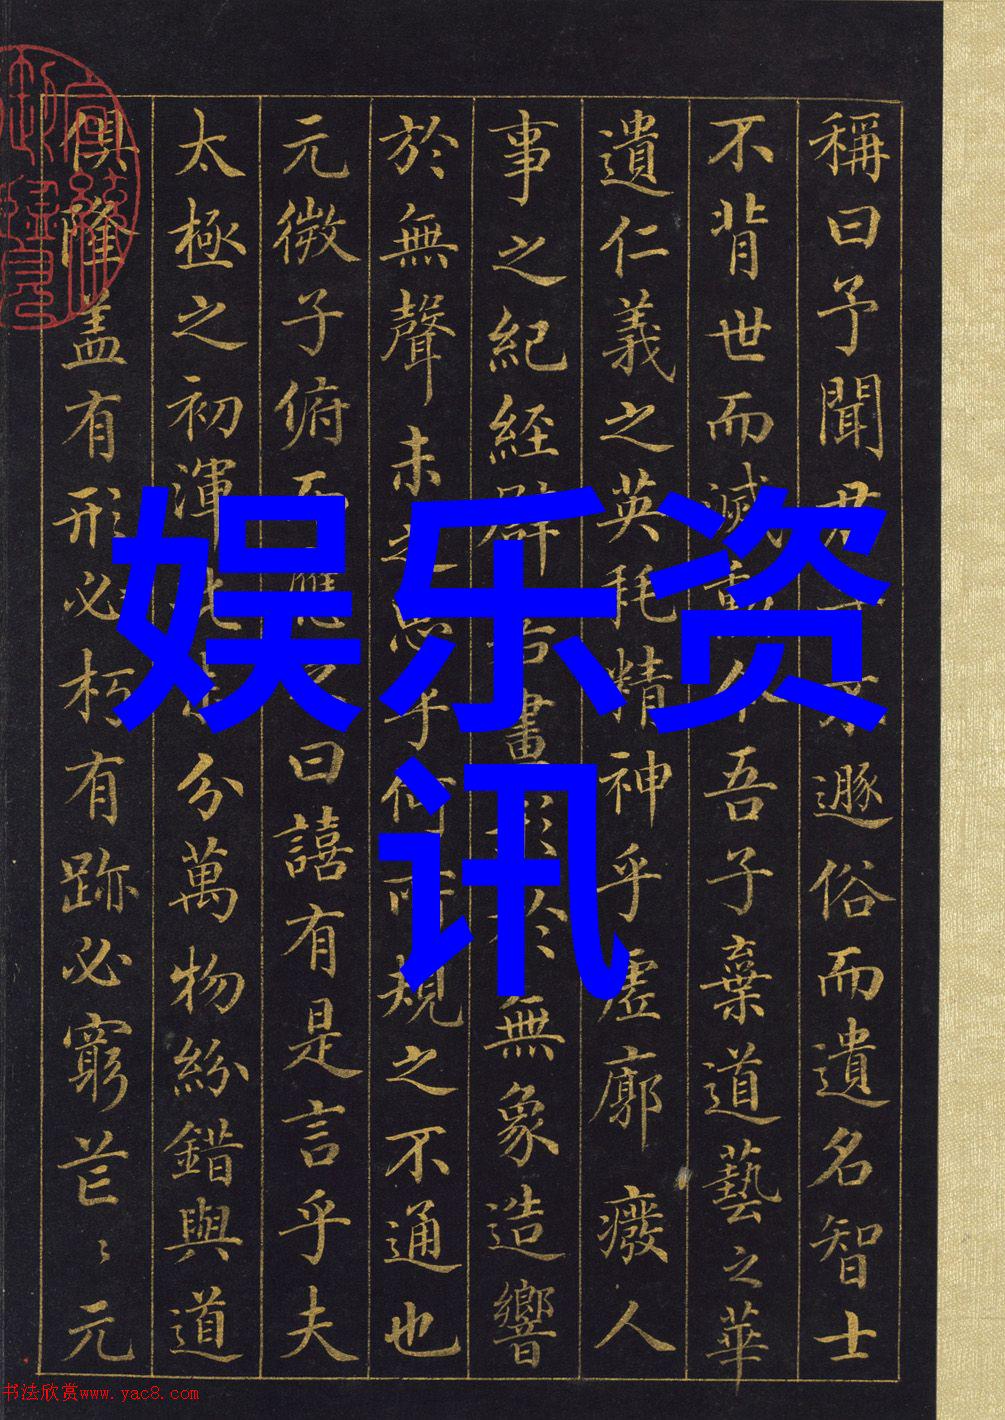 稱曰予聞君遯俗而遺名智士
不背世而滅吾子棄道藝之華
遺仁義之英耗精神乎虛廓癈人
事之紀經譬畫形於無象造響
於無聲未之思乎何所規之不通也
元微子俯而應曰譆有是言乎夫
太極之初渾分萬物紛錯與道
俱隆盖有形必朽有跡必窮芒〻元
娱乐资
讯
书法欣赏www.yac8.com